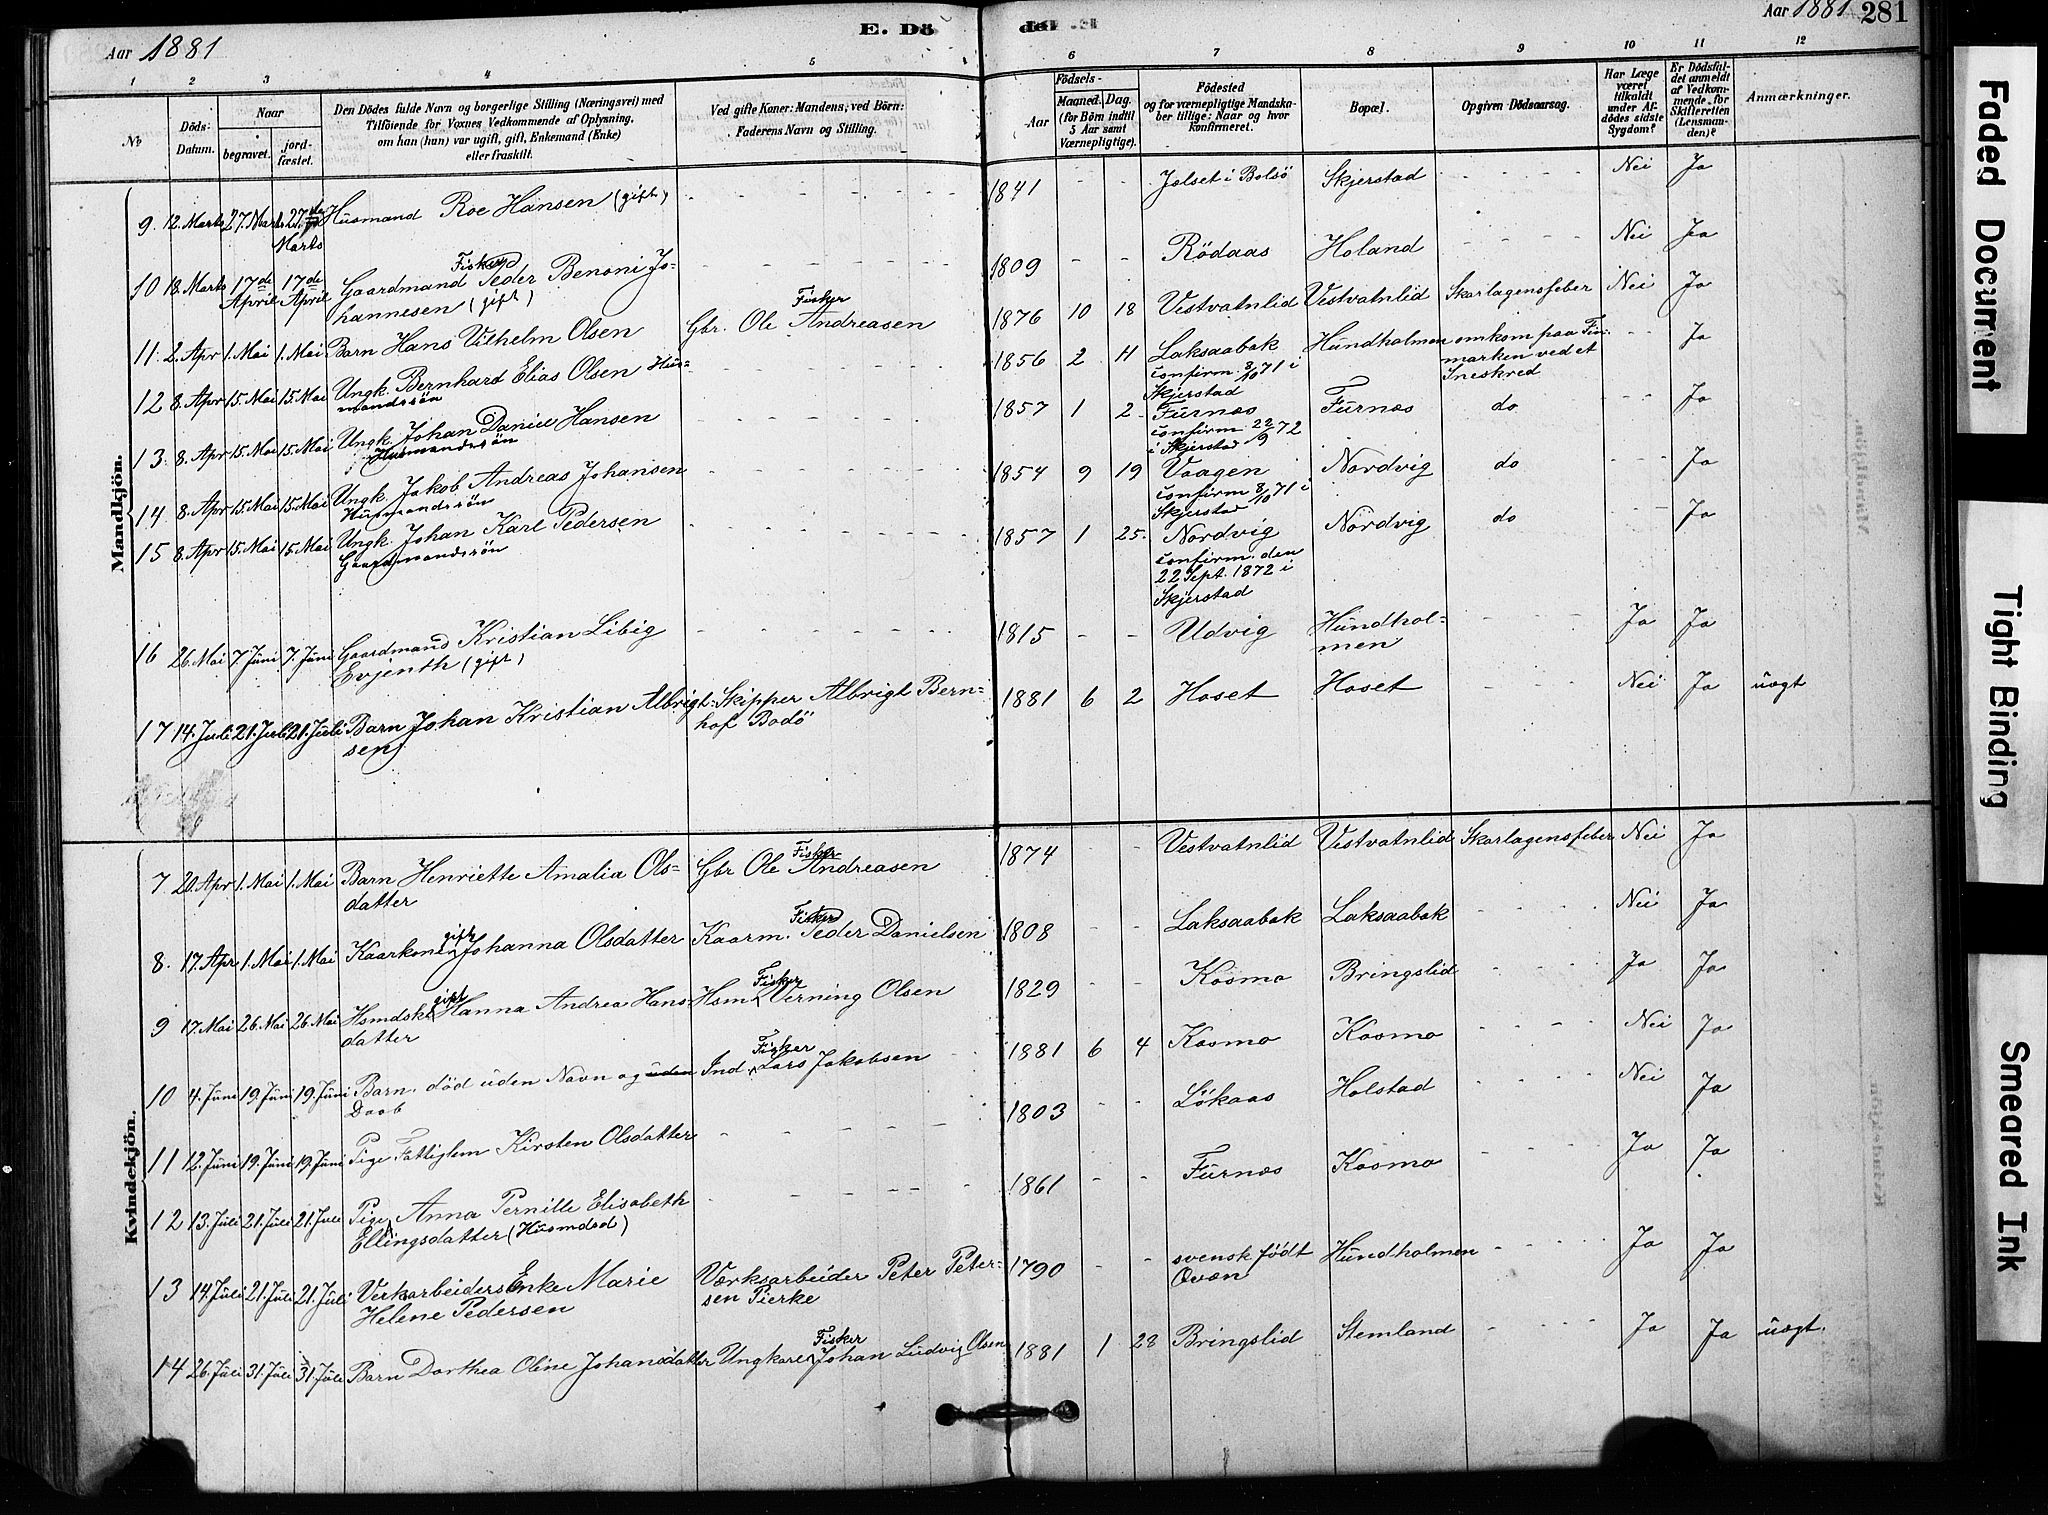 E. Dö
de.
Aar 1881
Aar 1881 281
1 2 3 4 5 6 7 8 9 10 11 12
No
Döds-Datum.
Naar
begravet.
jord-fæstet.
Den Dödes fulde Navn og borgerlige Stilling (Næringsvei) med
Tilföiende for Voxnes Vedkommende af Oplysning,
om han (hun) var ugift, gift, Enkemand (Enke)
eller fraskilt.
Ved gifte Koner: Mandens, ved Börn:
Faderens Navn og Stilling.
Födsels-
Aar
Maaned. Dag.
(for Börn indtil
5 Aar samt
Værnepligtige).
Födested
og for værnepligtige Mandska-
ber tillige: Naar og hvor
konfirmeret.
Bopæl.
Opgiven Dödsaarsag.
Har Læge
været
tilkaldt
under Af-
dödes sidste
Sygdom?
Er Dödsfal-
det anmeldt
af Vedkom-
mende for
Skifteretten
(Lensman-
den)?
Anmærkninger.
Mandkjön.
9. 12. Marts 27. Marts 27de Marts Husmand Roe Hansen (gift) 1841 Jolset i Bolsö Skjerstad Nei Ja
10 18. Marts 17de April 17de April Gaardmand Fisker Peder Benoni Jo-
hannesen (gift) 1809 Rödaas Holand Nei Ja
11. 2. Apr 1. Mai 1. Mai Barn Hans Vilhelm Olsen Gbr. Fisker Ole Andreasen 1876 10 18 Vestvatnlid Vestvatnlid Skarlagensfeber Nei Ja
12 8. Apr 15. Mai 15. Mai Ungk. Bernhard Elias Olsen Hus-
mandssön 1856 2 11 Laksaabak
confirm. 8/10 71 i
Skjerstad Hundholmen omkom paa Fin-
marken ved et
Sneskred Ja
13. 8. Apr 15. Mai 15. Mai Ungk. Johan Daniel Hansen
Husmandssön 1857 1 2 Furnæs
confirm. 22/9 72
i Skjerstad Furnæs do Ja
14 8. Apr 15. Mai 15. Mai Ungk. Jakob Andreas Johansen
Husmandssön 1854 9 19 Vaagen
confirm 8/10 71 i
Skjerstad Nordvig do Ja
15 8. Apr 15. Mai 15. Mai Ungk. Johan Karl Pedersen
Gaardmandssön 1857 1 25. Nordvig
confirm. den
22 Sept. 1872 i
Skjerstad Nordvig do Ja
16 26. Mai 7. Juni 7. Juni Gaardmand Kristian Libig
Evjenth (gift) 1815 Udvig Hundhol-
men Ja Ja
17 14. Juli 21. Juli 21. Juli Barn Johan Kristian Albrigt-
sen Skipper Albrigt Bern-
hof Bodö 1881 6 2 Hoset Hoset Nei Ja uægt
Kvindekjön.
7 20. Apr 1. Mai 1. Mai Barn Henriette Amalia Ols-
datter Gbr Fisker Ole Andreasen 1874 Vestvatnlid Vestvatnlid Skarlagensfeber Nei Ja
8. 17. Apr 1. Mai 1. Mai Kaarkone gift Johanna Olsdatter Kaarm. Fisker Peder Danielsen 1808 Laksaabak Laksaabak Nei Ja
9 17. Mai 26. Mai 26. Mai Hsmdsk gift Hanna Andrea Hans-
datter Hsm Fisker Verning Olsen 1829 Kosmo Bringslid Ja Ja
10 4. Juni 19. Juni 19. Juni Barn. död uden Navn og uden
Daab Ind. Fisker Lars Jakobsen 1881 6 4 Kosmo Kosmo Nei Ja
11 12. Juni 19. Juni 19. Juni Pige Fatliglem Kirsten Olsdatter 1803 Lökaas Holstad Nei Ja
12 13. Juli 21. Juli 21. Juli Pige Anna Pernille Elisabeth
Ellingsdatter (Husmdsd) 1861 Furnæs Kosmo Ja Ja
13 14. Juli 21. Juli 21. Juli Verksarbeiders Enke Marie
Helene Pedersen Værksarbeider Peter Peter-
sen Pierke 1790 svensk födt
Qvæn Hundholmen Ja Ja
14 26. Juli 31. Juli 31. Juli Barn Dorthea Oline Johansdatter Ungkarl Fisker Johan Ludvig Olsen 1881 1 28 Bringslid Stemland Ja Ja uægt.
Faded Document
Tight Binding
Smeared Ink